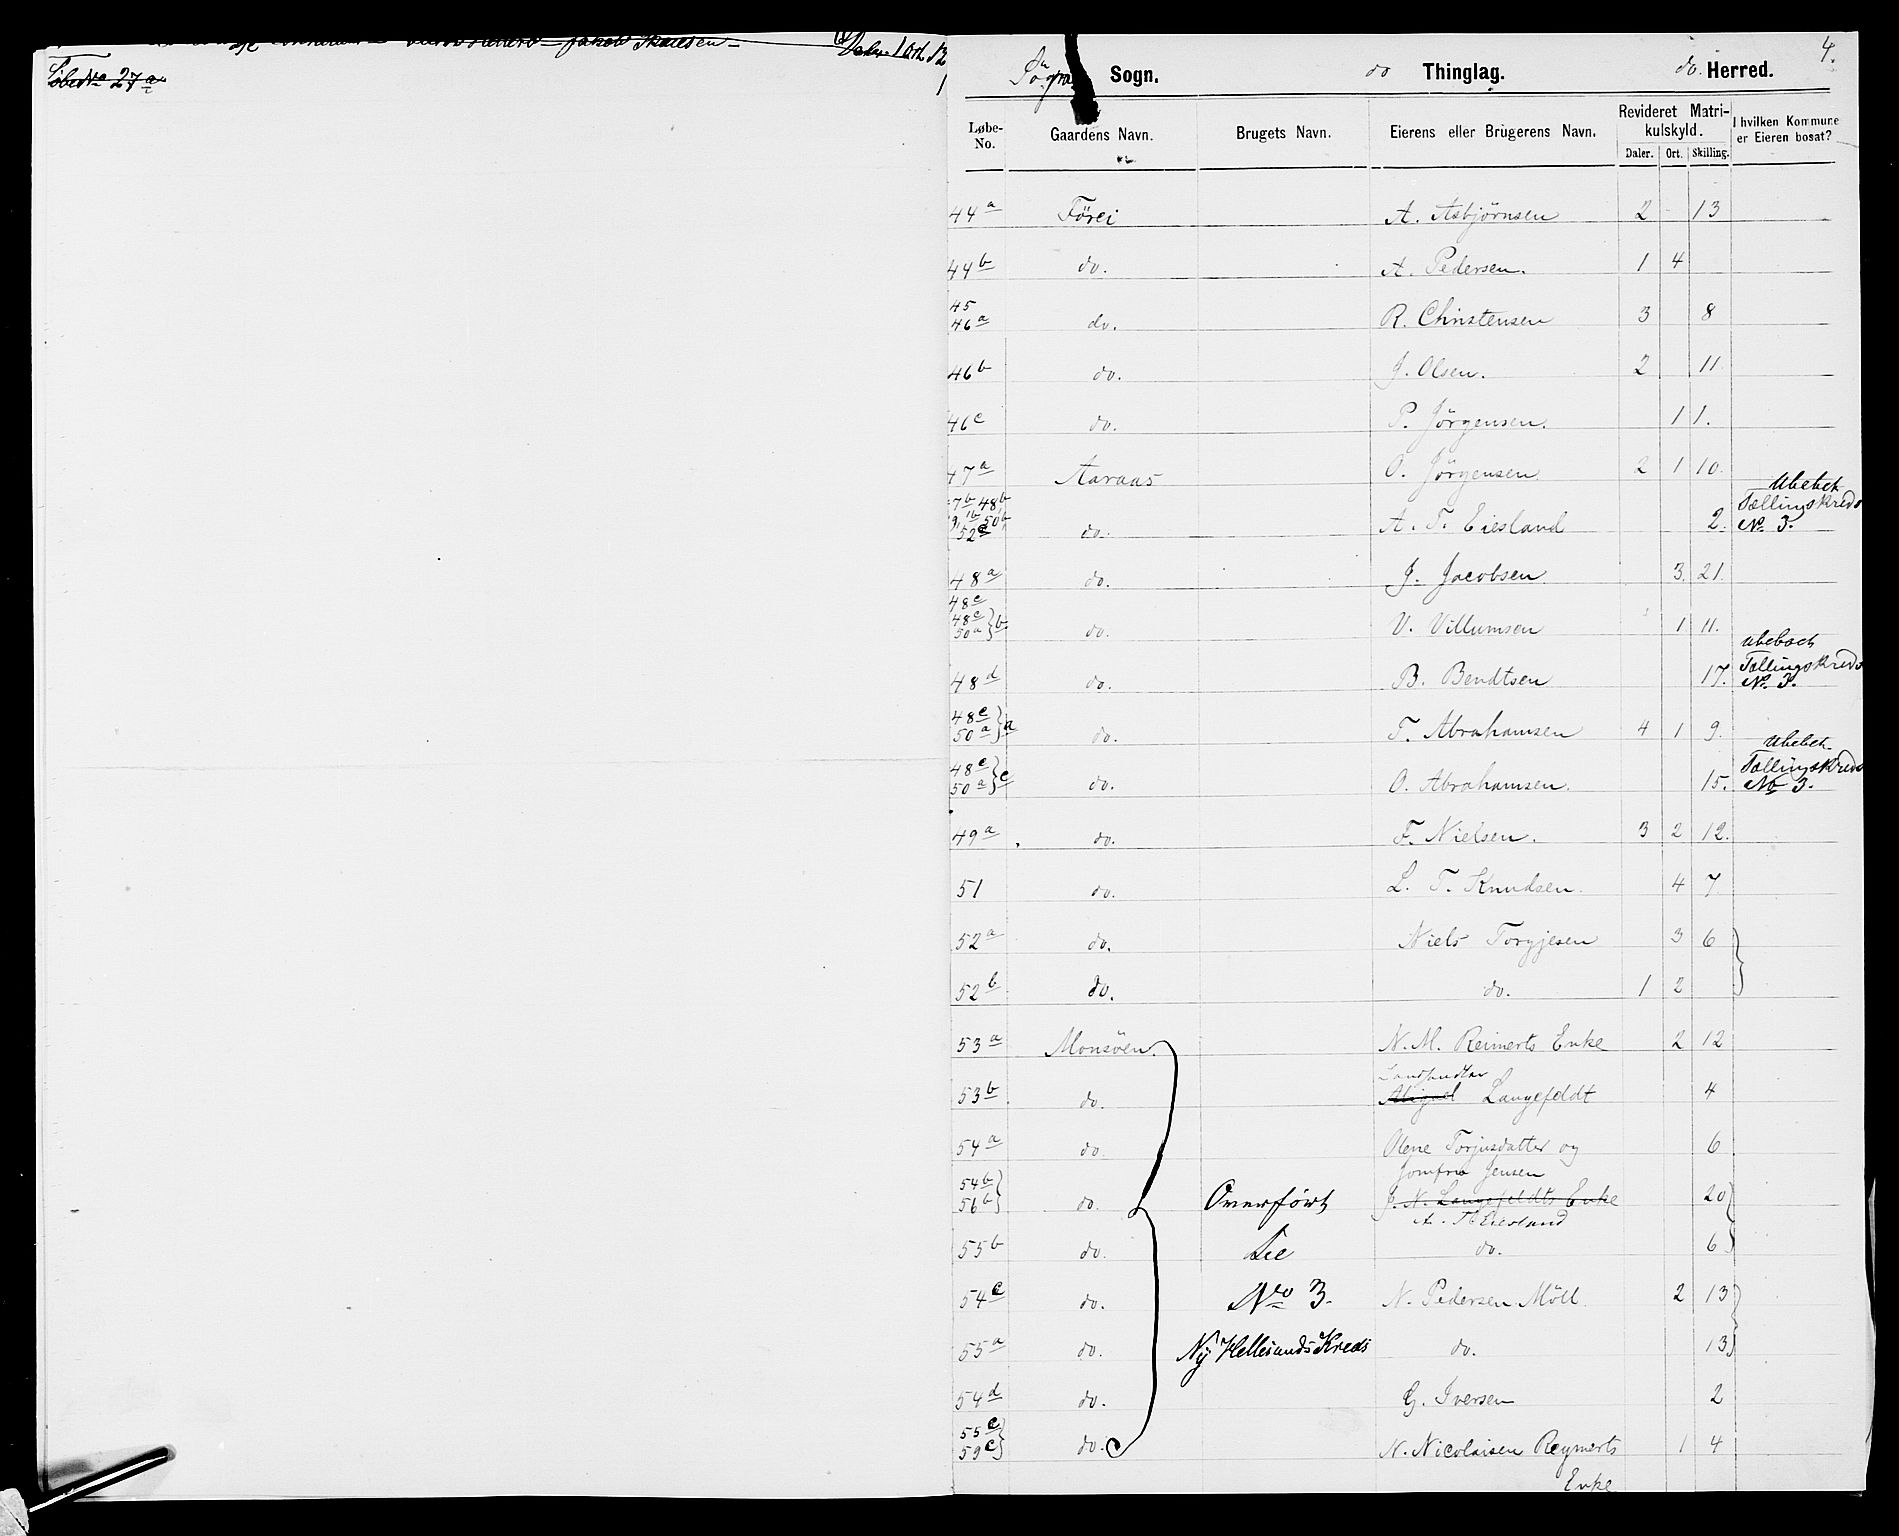 Jakob
Daler 1 Ort 12
LøbeNo 27a
1
4.
Søgne Sogn. do Thinglag. do. Herred.
Løbe-No. Gaardens Navn. Brugets Navn. Eierens eller Brugerens Navn. Revideret Matrikulskyld. I hvilken Kommune er Eieren bosat?
Daler. Ort. Skilling.
44a Förei A. Asbjörnsen 2 13
44b do. A. Pedersen. 1 4
45 46a do. R. Christensen 3 8
46b do. J. Olsen. 2 11
46c do. P. Jörgensen. 1 1.
47a Aaraas O. Jörgensen 2 1 10.
7b 48b 9,1b 50b 52c do. A. T. Eiesland 2. Ubeboet Tællingskreds No. 3.
48a do. J. Jacobsen 3. 21.
48c 48e 50a } b. do. V. Villumsen 1 11.
48d do. B. Bendtsen 17. Ubeboet Tællingskreds No. 3.
48e 50a } a do. T. Abrahamsen 4 1 9.
48e 50a } c do. O. Abrahamsen. 15. Ubeboet Tællingskreds No 3.
49a do. F. Nielsen. 3 2 12.
51 do. L. T. Knudsen. 4 7
52a do. Niels Torgjesen 3 6
52b do. do. 1 2
53a Monsöen. N. M. Reimerts Enke 2 12
53b do. Landhandler Langefeldt 4
54a do. Olene Torjusdatter og Jomfru Jensen 6
54b 56b } do. Overført J. N. Langefeldts Enke A. T. Eiesland 20
55b do. Se do. 6
54c do. Nro 3. N. Pedersen Möll 2 13
55a do. Ny Hellesunds Kreds do. 13
54d do. G. Iversen 2
55c 59c } do. N. Nicolaisen Reymerts Enke 1 4